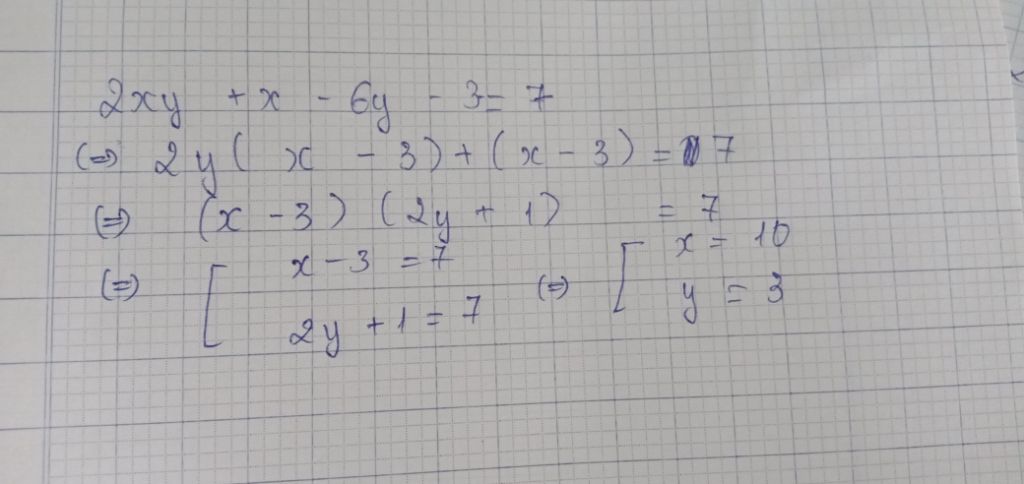 2xy + x - 6y - 3 = 7
(=) 2y( x - 3) + (x - 3) = 7
(=) (x - 3) (2y + 1) = 7
(=) [ x - 3 = 7 (=) [ x = 10
2y + 1 = 7 y = 3